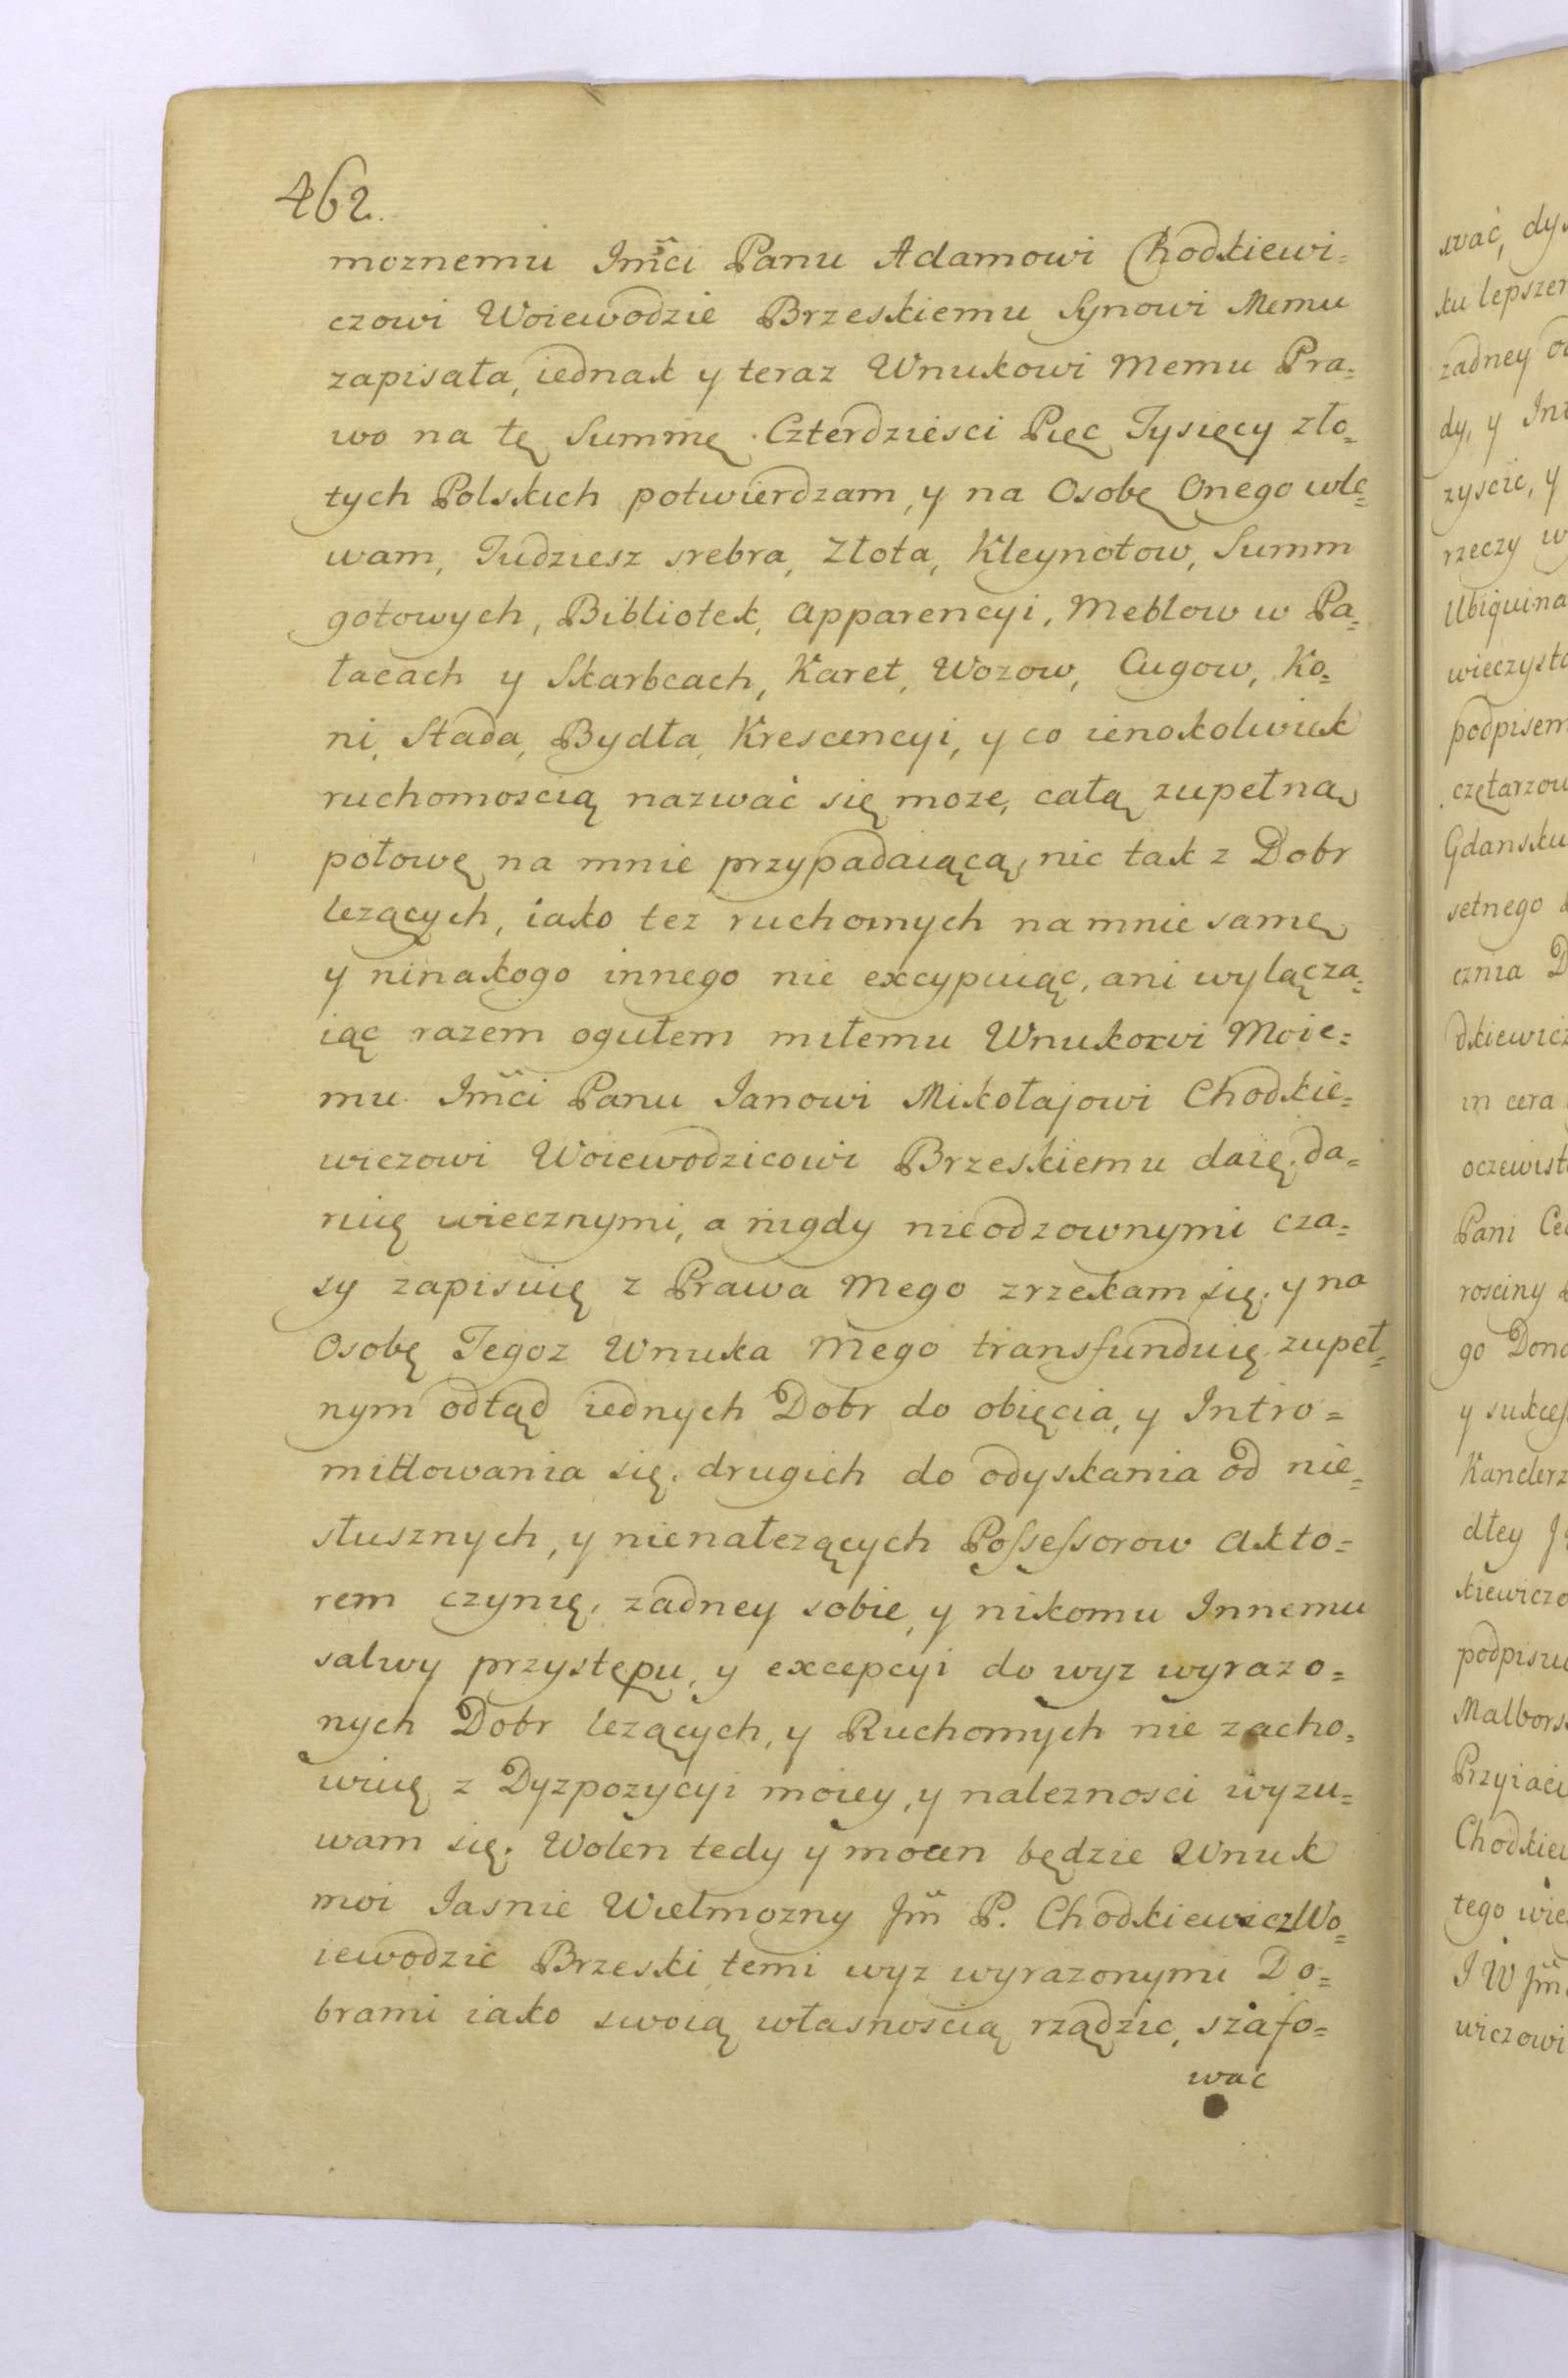 462.
moznemu Jm̃ci Panu Adamowi Chodkiewi=
czowi Woiewodzie Brzeskiemu Synowi Memu
zapisała, iednak y teraz Wnukowi Memu Pra=
wo na tę Summę Czterdziesci Pięc Tysięcy zło=
tych Polskich potwierdzam, y na Osobę Onego wle=
wam, Tudziesz srebra, Złota, Kleynotow, Summ
gotowych, Bibliotek, Apparencyi, Meblow w Pa=
łacach y Skarbcach, Karet, Wozow, Cugow, Ko=
ni, Stada, Bydła, Krescencyi, y co ienokolwiek
ruchomoscią nazwać się moze, całą zupełną
połowę na mnie przypadaiącą, nic tak z Dobr
lezących, iako tez ruchomych na mnie samę
y ninakogo innego nie excypuiąc, ani wyłącza=
iąc razem ogułem miłemu Wnukowi Moie=
mu Jm̃ci Panu Janowi Mikołajowi Chodkie=
wiczowi Woiewodzicowi Brzeskiemu daię, da=
ruię wiecznymi, a nigdy nieodzownymi cza=
sy zapisuię z Prawa Mego zrzekam się, y na
Osobę Tegoz Wnuka Mego transfunduię zupeł=
nym odtąd iednych Dobr do obięcia, y Intro=
mittowania się, drugich do odyskania od nie=
słusznych, y nienalezących Possessorow Akto=
rem czynię, zadney sobie, y nikomu Innemu
salwy przystępu, y excepcyi do wyz wyrazo=
nych Dobr lezących, y Ruchomych nie zacho=
wuię z Dyzpozycyi moiey, y naleznosci wyzu=
wam się. Wolen tedy y mocen będzie Wnuk
moi Jasnie Wielmozny Jm̃ P. Chodkiewicz Wo=
iewodzic Brzeski temi wyz wyrazonymi Do=
brami iako swoią własnoscią rządzic, szafo=
wac
wać, dys
ku lepszem
zadney
dy, y Int
zyscie, y
rzeczy
Ubiquina
wieczysto
podpisem
czętarzow
Gdansku
setnego
cznia D
dkiewicz
in cera
oczewist
Pani Ce
rosciny
go Dona
y sukces
Kanclerz
dłey
kiewiczo
podpisu
Malbors
Przyiaci
Chodkiew
tego wie
J W Jm̃
wiczowi